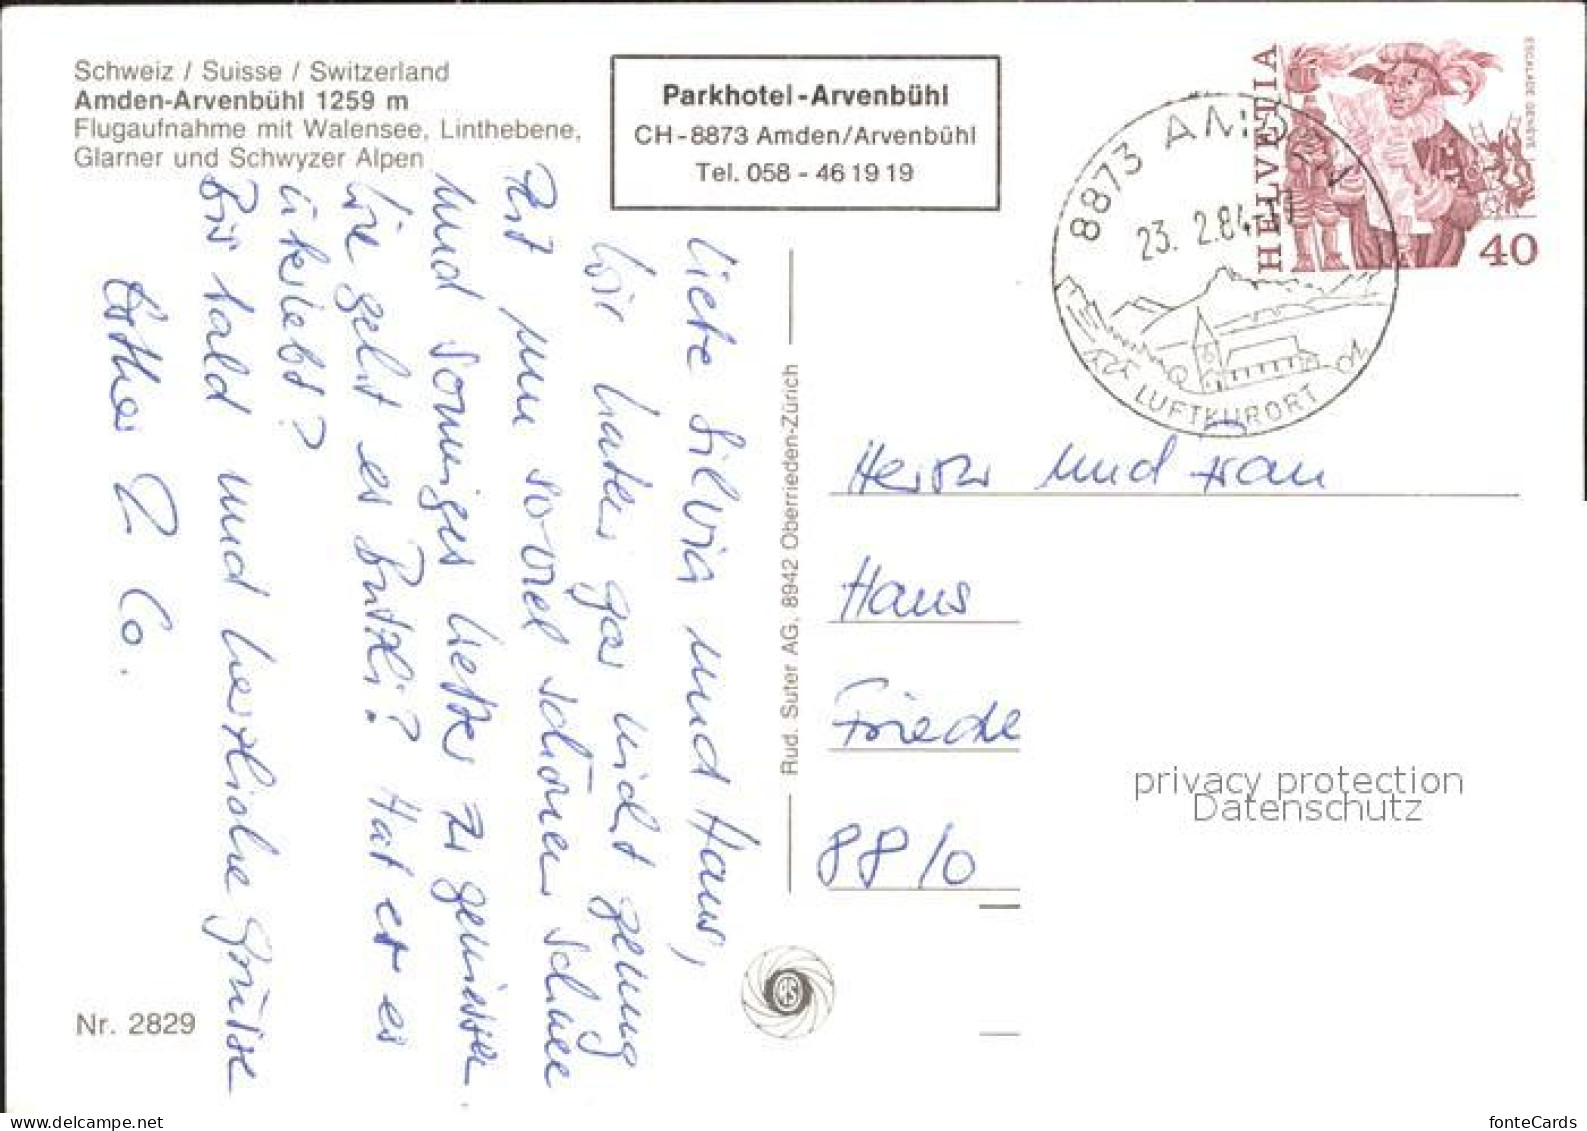 Schweiz / Suisse / Switzerland
Amden-Arvenbühl 1259 m
Flugaufnahme mit Walensee, Linthebene,
Glarner und Schwyzer Alpen
Parkhotel-Arvenbühl
CH-8873 Amden/Arvenbühl
Tel. 058 - 46 19 19
8873 AMDEN
23. 2.84
LUFTKURORT
HELVETIA
ESCALADE GENÈVE
40
Liebe Silvia und Haus,
Wir haben gar nicht genug
Zeit um soviel schönen Schnee
und sonniges Wetter zu geniessen
Wie geht es Butzli? Hat er es
überlebt?
Bis bald und herzliche Grüsse
Esther & Co.
Rud. Suter AG, 8942 Oberrieden-Zürich
Herrn und Frau
Hans
Friede
8810
privacy protection
Datenschutz
Nr. 2829
www.delcampe.net
fonteCards